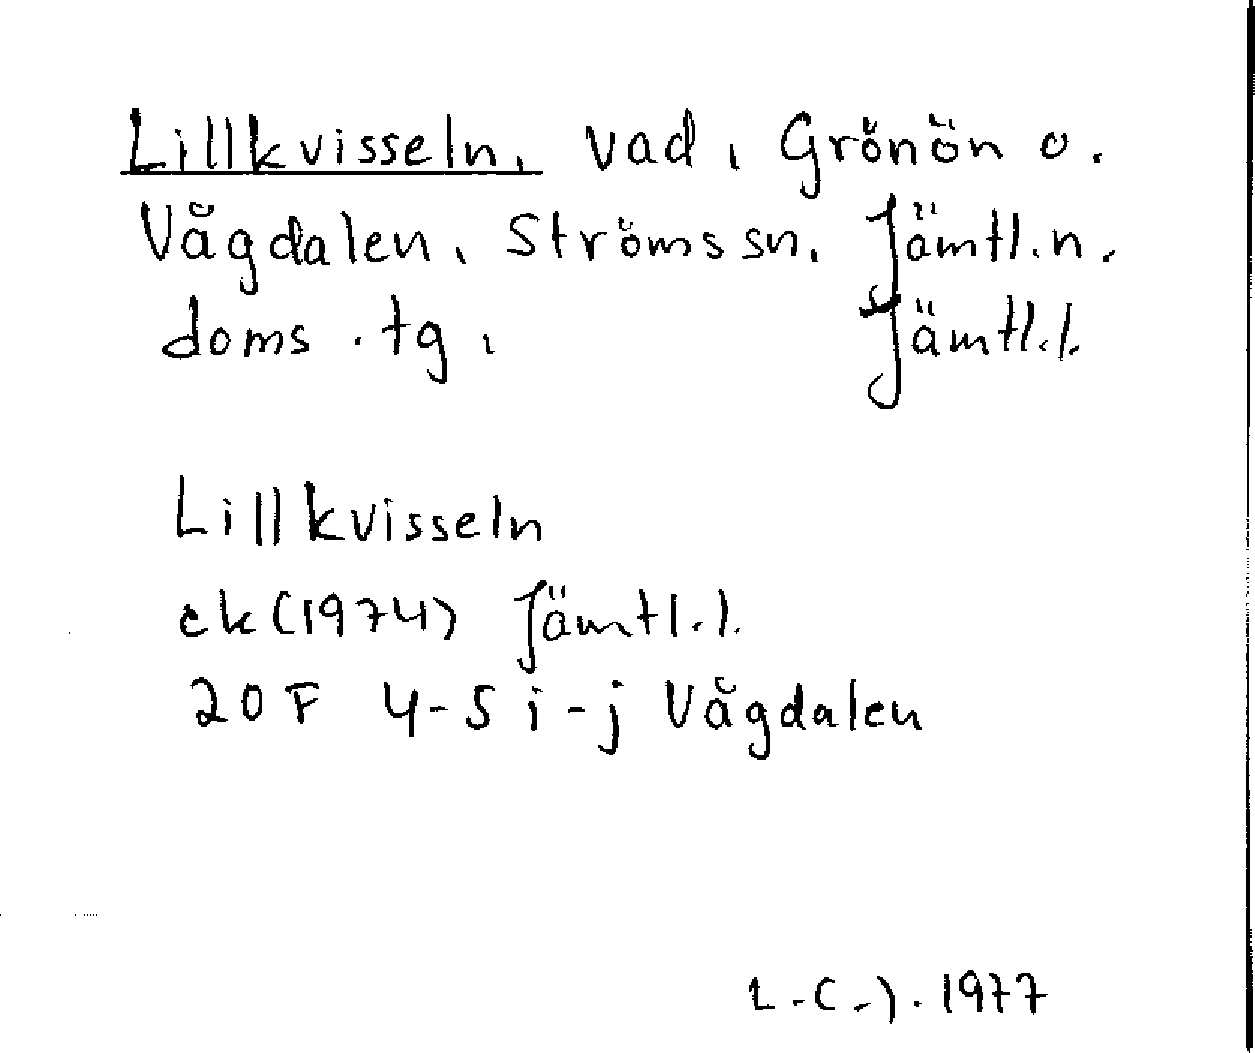 Lillkvisseln, vad, Grönön o.
Vågdalen, Ströms sn, Jämtl.n.
doms.tg, Jämtl.l.
Lillkvisseln
ek (1974) Jämtl.l.
20 F 4-5 i-j Vågdalen
1977